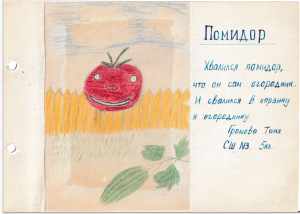 Помидор
Хвалился помидор,
что он сам огородник.
И свалился в корзину
к огороднику.
Громова Таня
СШ №3 5кл.